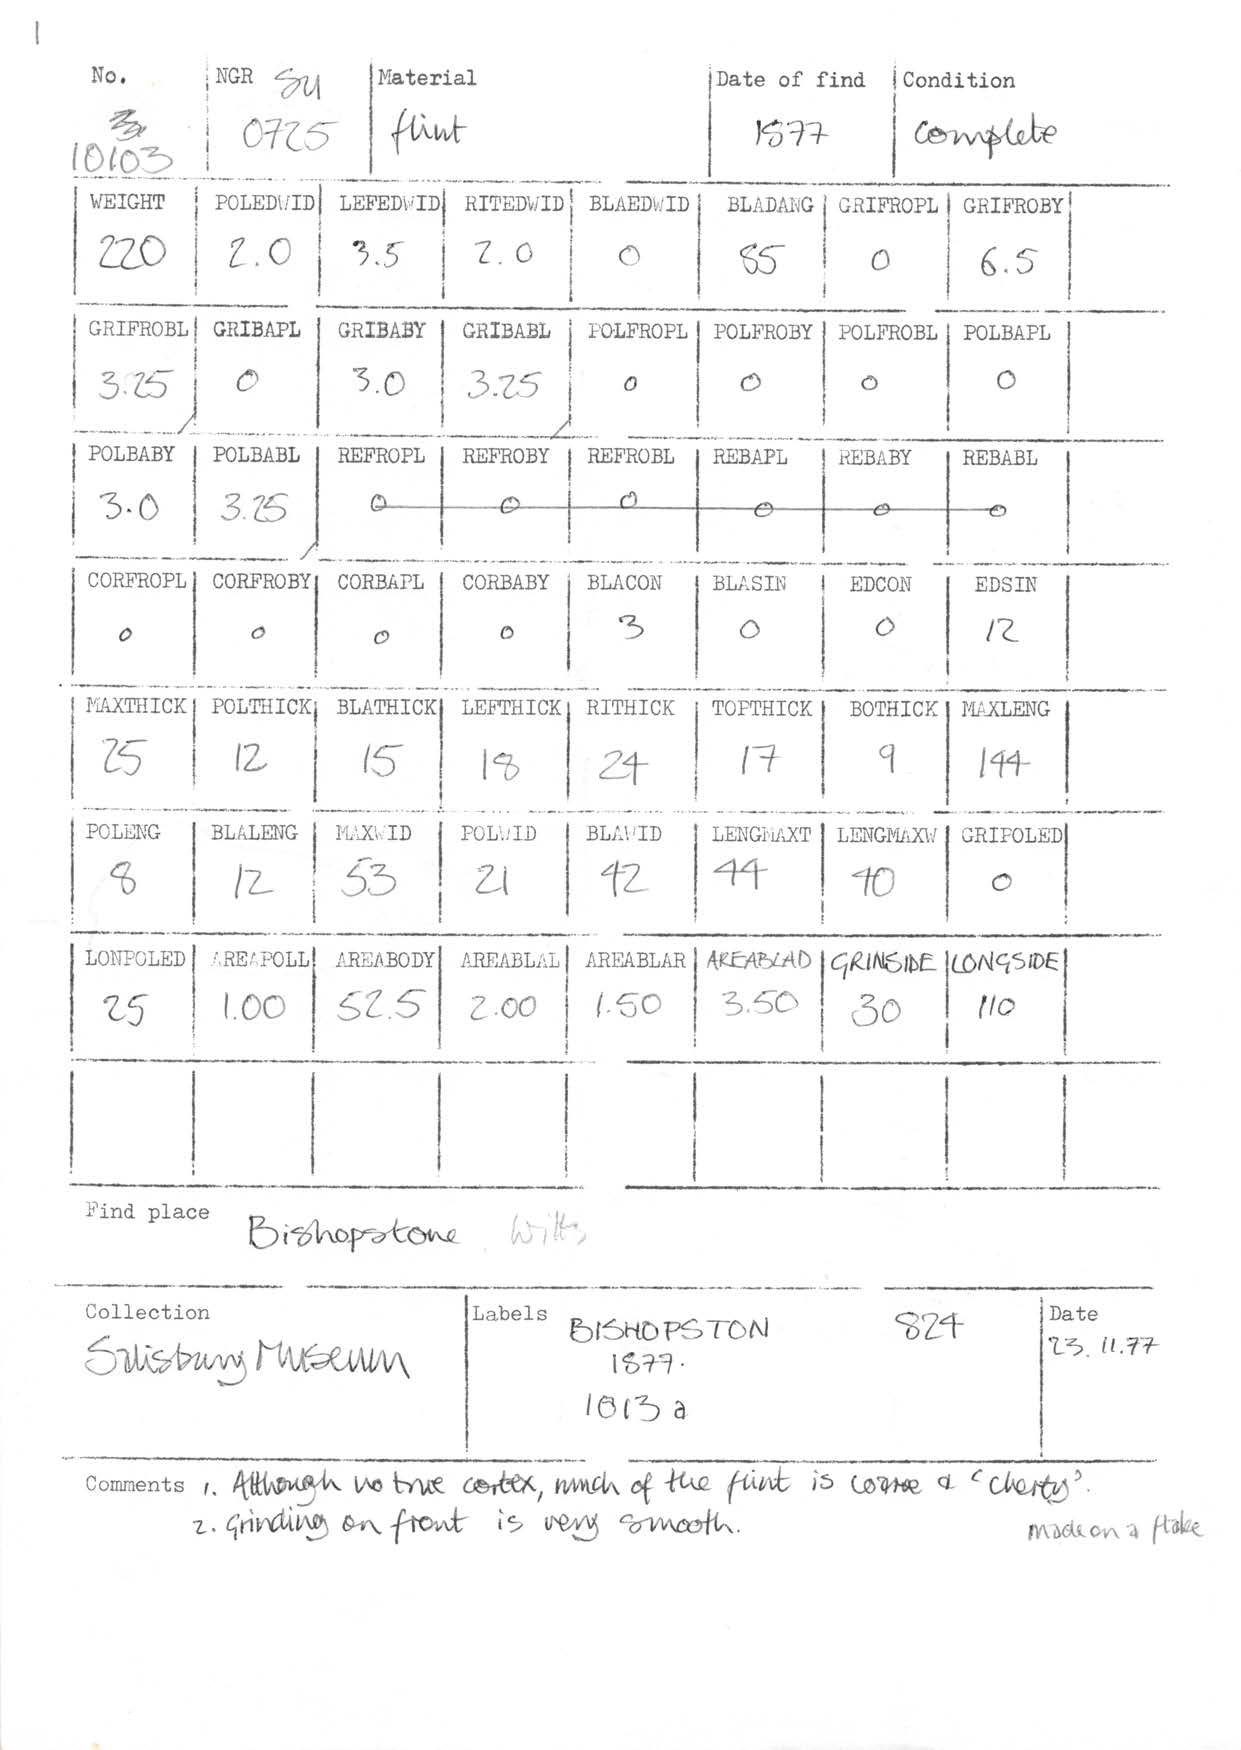 1
No. NGR SU Material Date of find Condition
10103 0725 flint 1877 complete
WEIGHT POLEDWID LEFEDWID RITEDWID BLAEDWID BLADANG GRIFROPL GRIFROBY
220 2.0 3.5 2.0 0 85 0 6.5
GRIFROBL GRIBAPL GRIBABY GRIBABL POLFROPL POLFROBY POLFROBL POLBAPL
3.25 0 3.0 3.25 0 0 0 0
POLBABY POLBABL REFROPL REFROBY REFROBL REBAPL REBABY REBABL
3.0 3.25 0 0 0 0 0 0
CORFROPL CORFROBY CORBAPL CORBABY BLACON BLASIN EDCON EDSIN
0 0 0 0 3 0 0 12
MAXTHICK POLTHICK BLATHICK LEFTHICK RITHICK TOPTHICK BOTHICK MAXLENG
25 12 15 18 24 17 9 144
POLENG BLALENG MAXWID POLWID BLAWID LENGMAXT LENGMAXW GRIPOLED
8 12 53 21 42 44 40 0
LONPOLED AREAPOLL AREABODY AREABLAL AREABLAR AREABLAD GRINSIDE LONGSIDE
25 1.00 52.5 2.00 1.50 3.50 30 110
Find place Bishopstone Wilts
Collection Labels BISHOPSTON 824 Date
Salisbury Museum 1877. 23.11.77
1013 a
Comments 1. Although no true cortex, much of the flint is coarse & 'cherty'.
2. Grinding on front is very smooth. made on a flake